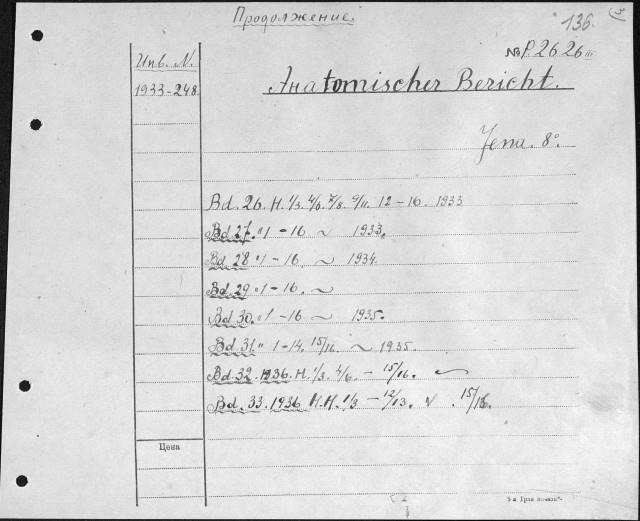 Продолжение.
136.
Инв. N.
№P. 2626 III
1933-248.
Anatomischer Bericht.
Jena. 8°.
Bd. 26. H. 1/3. 4/6. 7/8. 9/11. 12-16. 1933
Bd. 27. " 1-16 ~ 1933.
Bd. 28 " 1-16. ~ 1934.
Bd. 29 " 1-16. ~
Bd. 30. " 1-16 ~ 1935.
Bd. 31. " 1-14. 15/16. ~ 1935
Bd. 32. 1936. H. 1/3. 4/6. - 15/16. ~
Bd. 33. 1936 H.H. 1/3 - 12/13. 15/16.
Цена